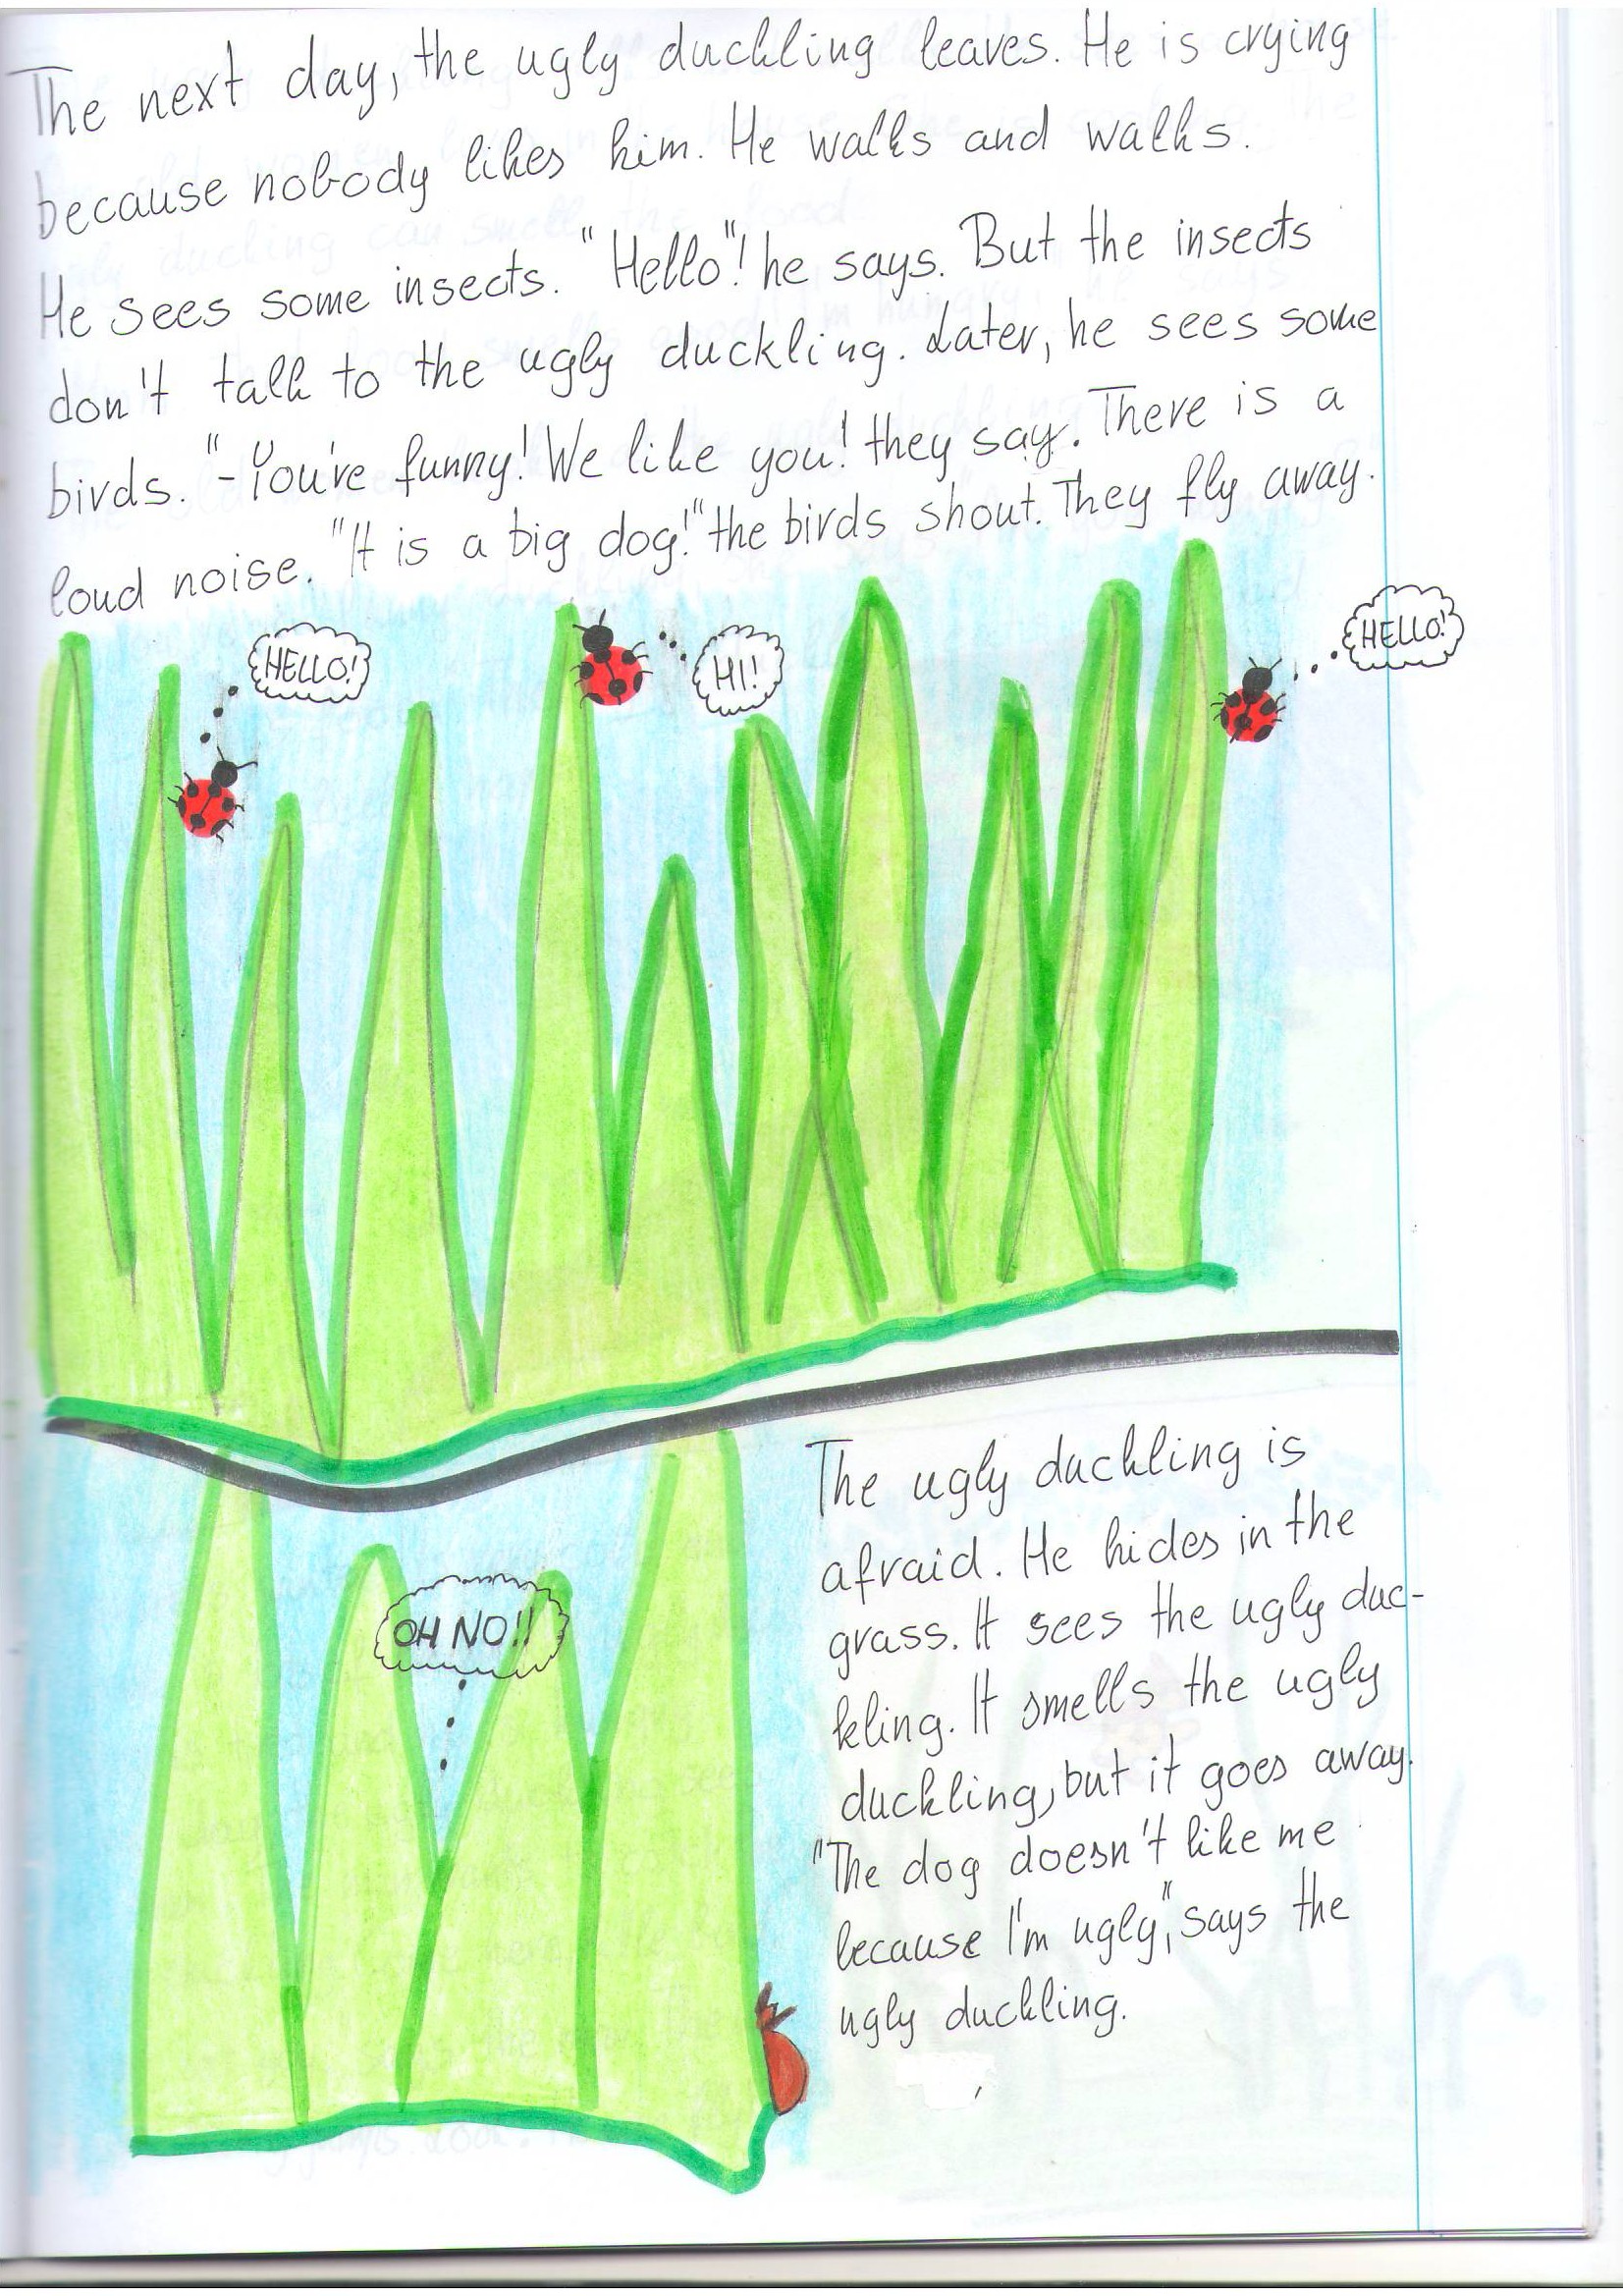 The next day, the ugly duckling leaves. He is crying
because nobody likes him. He walks and walks.
He sees some insects. "Hello"! he says. But the insects
don't talk to the ugly duckling. Later, he sees some
birds. "-You're funny! We like you! they say. There is a
loud noise. "It is a big dog!" the birds shout. They fly away.
HELLO!
HI!
HELLO!
The ugly duckling is
afraid. He hides in the
grass. It sees the ugly duc-
kling. It smells the ugly
duckling, but it goes away.
"The dog doesn't like me
because I'm ugly", says the
ugly duckling.
OH NO!!